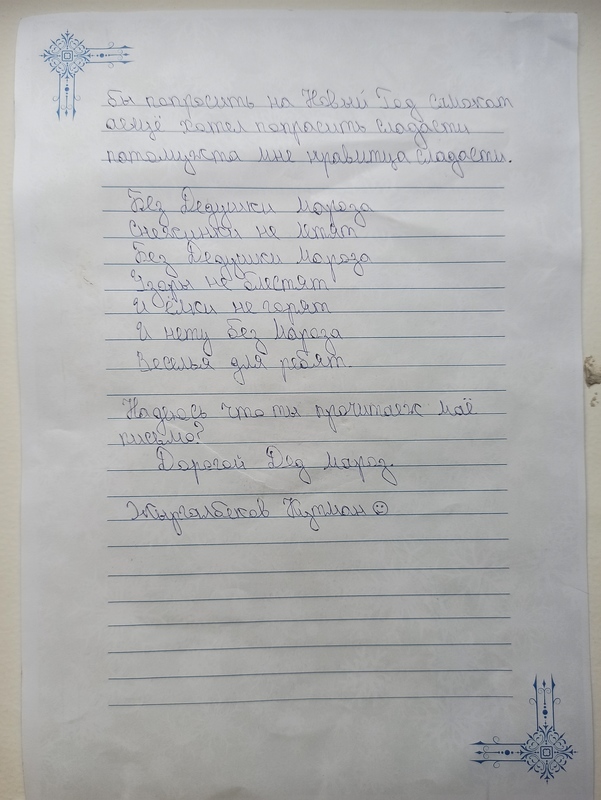 бы попросить на Новый Год самокат
аещё хотел попросить сладасти
потомушта мне нравитца сладасти.
Без Дедушки мороза
Снежинки не летят
Без Дедушки мороза
Узоры не блестят
И ёлки не горят
И нету без мороза
Веселья для ребят.
Надеюсь что ты прочитаеж маё
письмо?
Дорогой Дед мароз.
Жыргалбеков Кутман ☺